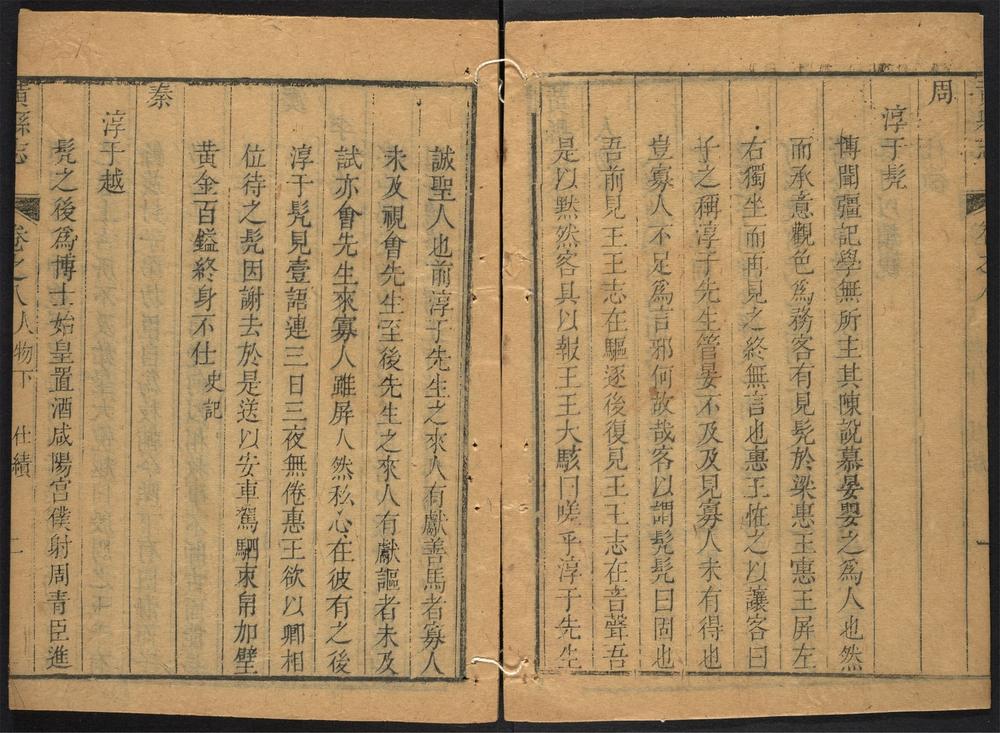 周
淳于髡
博聞彊記學無所主其陳說慕晏嬰之爲人也然
而承意觀色爲務客有見髡於梁惠王惠王屏左
右獨坐而再見之終無言也惠王恠之以讓客曰
子之稱淳于先生管晏不及及見寡人未有得也
豈寡人不足爲言邪何故哉客以謂髡髡曰固也
吾前見王王志在驅逐後復見王王志在音聲吾
是以黙然客具以報王王大駭曰嗟乎淳于先生
誠聖人也前淳于先生之來人有獻善馬者寡人
未及視會先生至後先生之來人有獻謳者未及
試亦會先生來寡人雖屏人然私心在彼有之後
淳于髡見壹語連三日三夜無倦惠王欲以卿相
位待之髡因謝去於是送以安車駕駟束帛加璧
黄金百鎰終身不仕 史記
秦
淳于越
髡之後爲博士始皇置酒咸陽宫僕射周青臣進
黄縣志 卷之八 人物下 仕績 二